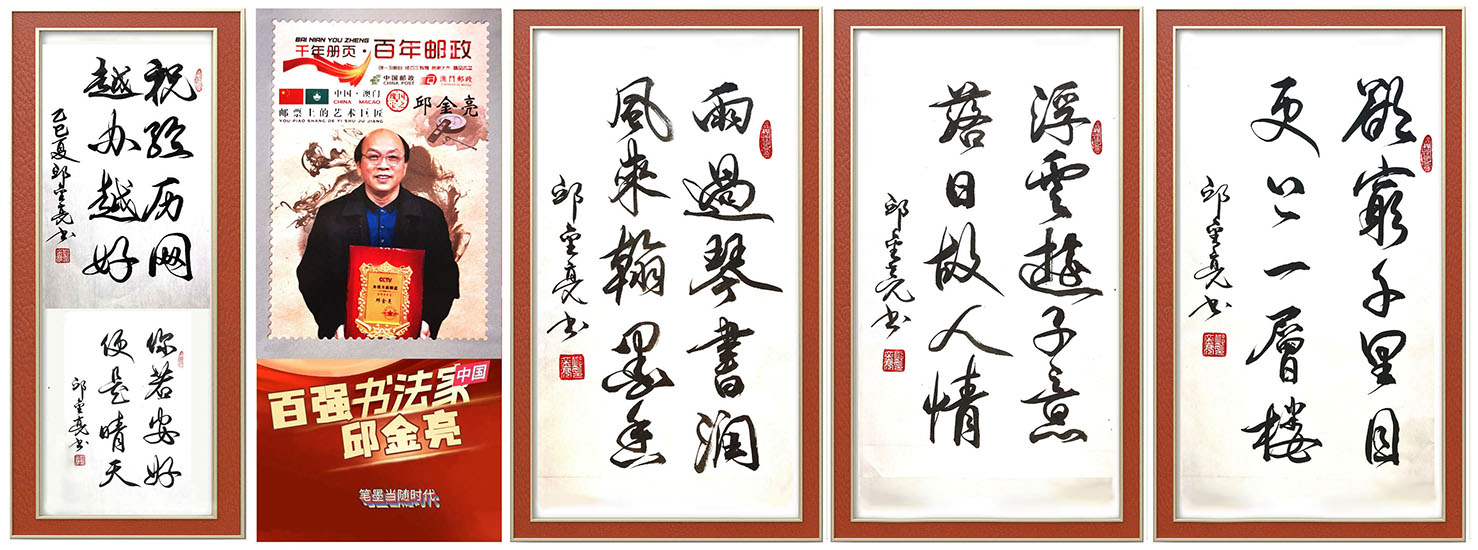 祝经历网
越办越好
乙巳夏邱金亮书
你若安好
便是晴天
邱金亮书
BAI NIAN YOU ZHENG
千年册页·百年邮政
中国邮政
CHINA POST
澳門郵政
中国·澳门
CHINA MACAO
邱金亮
邮票上的艺术巨匠
YOU PIAO SHANG DE YI SHU JU JIANG
CCTV
邱金亮
中国
百强书法家
邱金亮
笔墨当随时代
雨過琴書潤
風來翰墨香
邱金亮书
浮雲遊子意
落日故人情
邱金亮书
欲窮千里目
更上一層楼
邱金亮书